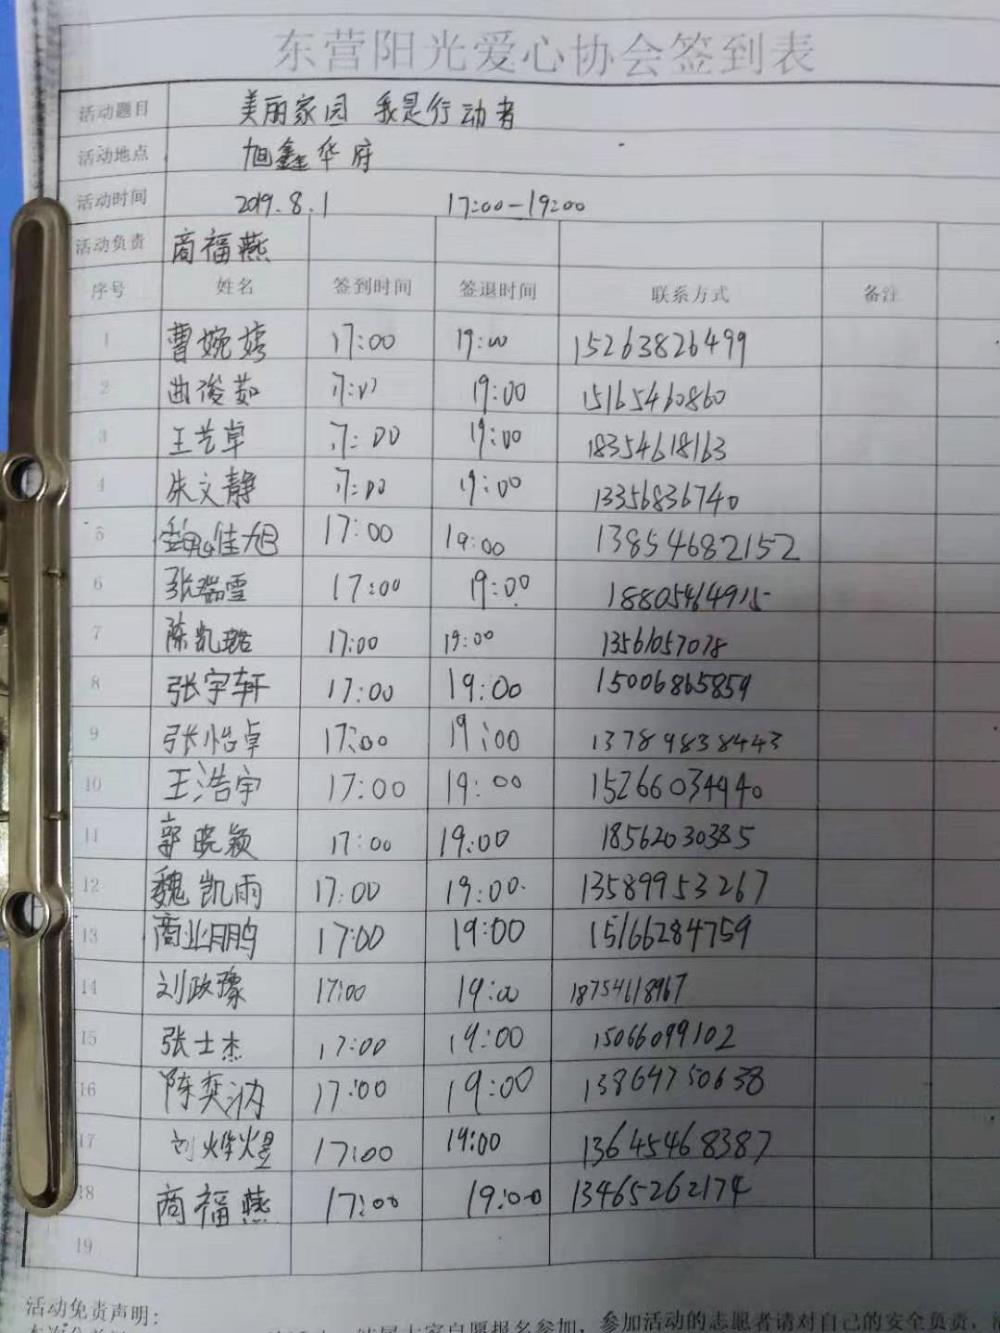 东营阳光爱心协会签到表
活动题目 美丽家园 我是行动者
活动地点 旭鑫华府
活动时间 2019.8.1 17:00-19:00
活动负责 商福燕
序号 姓名 签到时间 签退时间 联系方式 备注
1 曹婉婷 17:00 19:00 15263826499
2 曲俊茹 17:00 19:00 15165460860
3 王艺卓 17:00 19:00 18354618163
4 朱文静 17:00 19:00 13356836740
5 佳旭 17:00 19:00 13854682152
6 张瑞雪 17:00 19:00 18805464915
7 陈凯璐 17:00 19:00 13561057078
8 张宇轩 17:00 19:00 15006865859
9 张怡卓 17:00 19:00 13789838443
10 王浩宇 17:00 19:00 15266034940
11 郭晓颖 17:00 19:00 18562030385
12 魏凯雨 17:00 19:00 13589953267
13 商业鹏 17:00 19:00 15166284759
14 刘政豫 17:00 19:00 18754618967
15 张士杰 17:00 19:00 15066099102
16 陈奕汭 17:00 19:00 13864750638
17 刘烨煜 17:00 19:00 13645468387
18 商福燕 17:00 19:00 13465262174
19
活动免责声明：
参加活动的志愿者请对自己的安全负责，